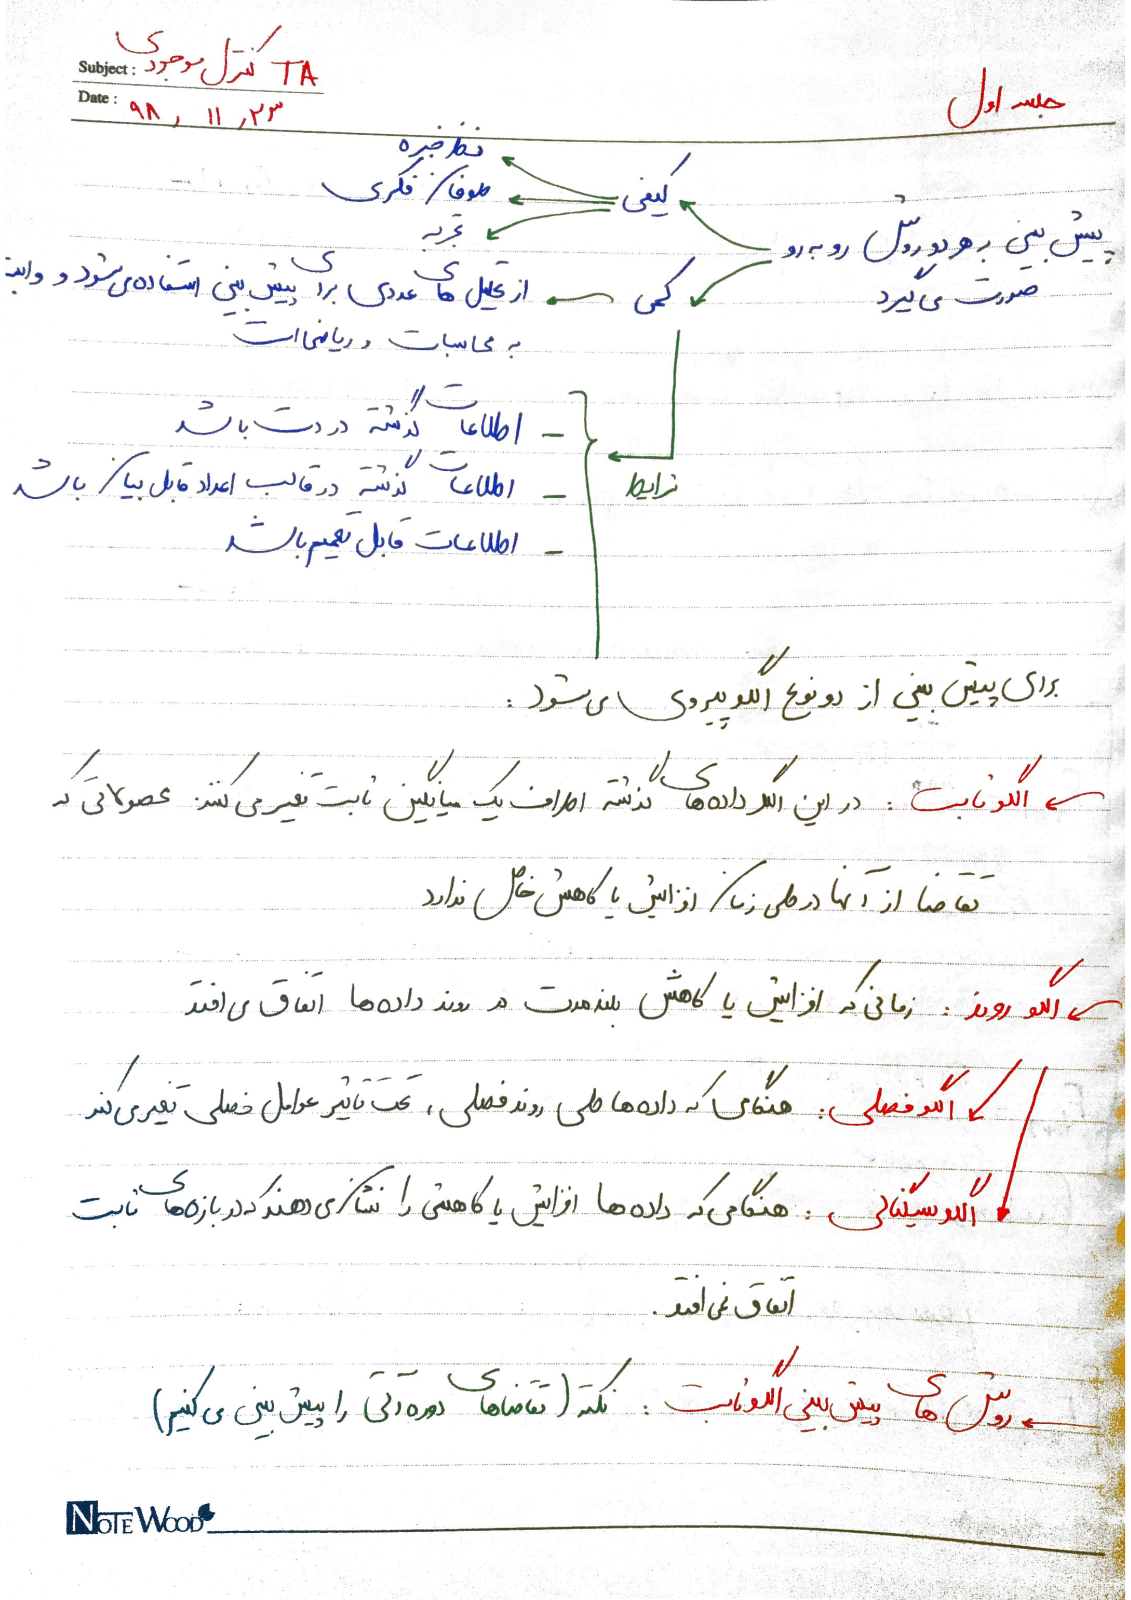 Subject : TA کنترل موجودی
Date : ۹۸ , ۱۱ , ۲۳
جلسه اول
پیش بینی به هر دو روش رو به رو
صورت می گیرد
کیفی
نظر خبره
طوفان فکری
تجربه
کمی
از تحلیل های عددی برای پیش بینی استفاده می شود و وابسته
به محاسبات و ریاضی است
شرایط
- اطلاعات گذشته در دست باشد
- اطلاعات گذشته در قالب اعداد قابل بیان باشد
- اطلاعات قابل تعمیم باشد
برای پیش بینی از دو نوع الگو پیروی می شود :
الگو ثابت : در این الگو داده های گذشته اطراف یک میانگین ثابت تغییر می کنند. محصولاتی که
تقاضا از آنها در طی زمان افزایش یا کاهش خاصی ندارد
الگو روند : زمانی که افزایش یا کاهش بلند مدت در روند داده ها اتفاق می افتد
الگو فصلی : هنگامی که داده ها طی روند فصلی ، تحت تاثیر عوامل فصلی تغییر می کند
الگو سیگنالی : هنگامی که داده ها افزایش یا کاهشی را نشان می دهند که در بازه های ثابت
اتفاق نمی افتد .
روش های پیش بینی الگو ثابت : نکته ( تقاضاهای دوره آتی را پیش بینی می کنیم )
NOTE WOOD